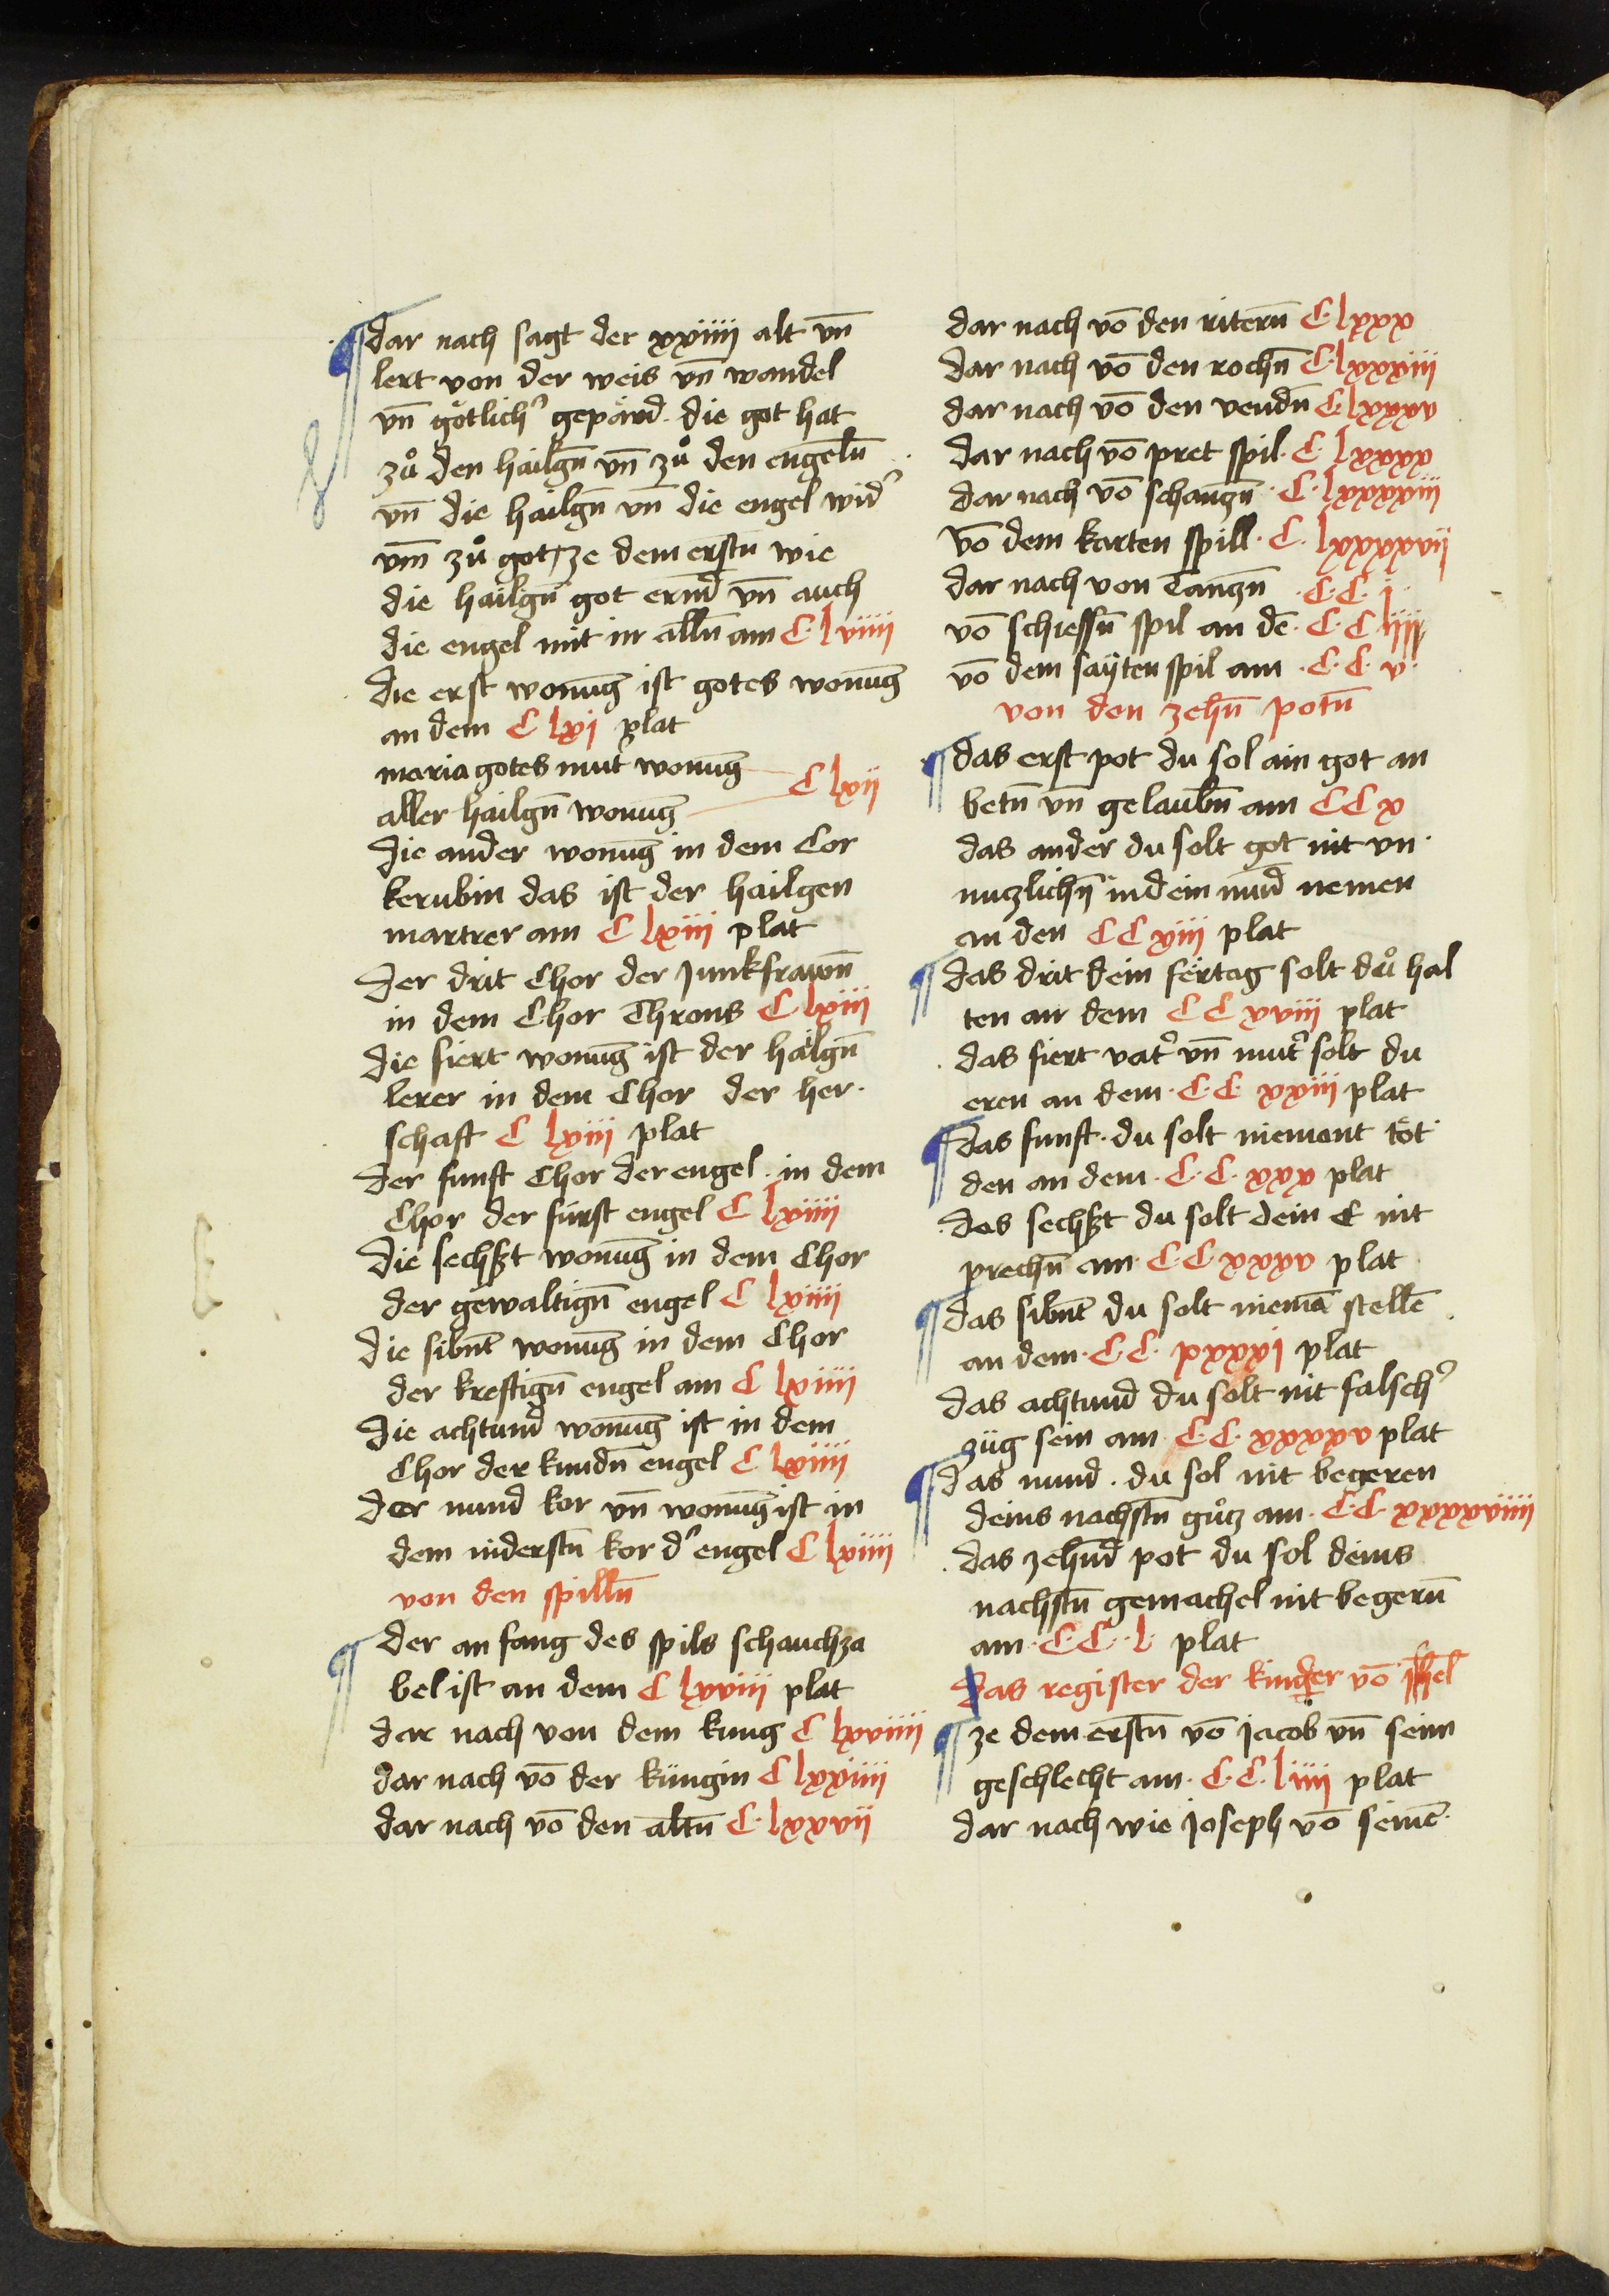 dar nach sagt der xxiiii alt vn̄
lert von der weis vn̄ wandel
vn̄ götlich' gepärd · die got hat
zů den hailgn̄ vn̄ zů den engeln̄
vn̄ die hailgn̄ vn̄ die engel wid'
vm̄ zů got / ze dem erstn̄ wie
die hailgn̄ got ernd̄ vn̄ auch
die engel mit in alln̄ am C · lviiii
die erst wonūg ist gotes wonūg
an dem C lxi plat
maria gotes mut' wonūg
aller hailgn̄ wonūg C lxii
die ander wonūg in dem Cor
kerubin das ist der hailgen
martrer am C lxiii plat
der drit Chor der junkfrawn̄
in dem Chor Throns C lxiii
die fiert wonūg ist der hailgn̄
lerer in dem Chor der her·
schaft C lxiii plat
der funft Chor der engel · in dem
Chor der fürst engel C lxiiii
die sechßt wonūg in dem Chor
der gewaltign̄ engel C lxiiii
die sibnt̄ wonūg in dem Chor
der kreftign̄ engel am C lxiiii
die achtund̄ wonūg ist in dem
Chor der kundn̄ engel C lxiiii
der nund kor vn̄ wonūg ist in
dem niderstn̄ kor d' engel C lxiiii
von den spilln̄
der anfang des spils schauchza
bel ist an dem C lxviii plat
dar nach von dem kung C lxviiii
dar nach vō der küngin C lxxiiii
dar nach vō den altn̄ C · lxxvii
dar nach vō den ritern̄ C · lxxx
dar nach vō den rochn̄ C · lxxxiiii
dar nach vō den vendn̄ C · lxxxv
dar nach vō pret spil · C · lxxxx
dar nach vō schanzn̄ · C · lxxxxiii
vō dem karten spill · C · lxxxxvii
dar nach von Tanzn̄ · C · C · i
vō schiessn̄ spil an dē · C · C iiii
vō dem sayten spil am · C · C · v ·
von den zehn̄ potn̄
das erst pot du sol ain got an
betn̄ vn̄ gelaubn̄ am C C x
das ander du solt got nit vn·
nuzlichn̄ in dein mund̄ nemen
an den C C xiii plat
das drit dein fertag solt dů hal
ten an dem C C xviii plat
das fiert vat' vn̄ mut' solt du
eren an dem · C · C · xxiii plat
das funft · du solt niemant töt
den an dem · C · C · xxx plat
das sechßt du solt dein E nit
prechn̄ am · C · C xxxv plat
das sibnt̄ du solt niemā stellē
an dem · C · C · xxxxi plat
das achtund̄ du solt nit falsch'
züg sein am · C · C · xxxxv plat
das nund · du sol nit begeren
deins nachstn̄ gůtz am · C · C · xxxxviiii
das zehnd̄ pot du sol deins
nachstn̄ gemachel nit begern̄
am · C · C · l · plat
Das register der kinder vō
ze dem erstn̄ vō jacob vn̄ seim
geschlecht am · C · C · liiii plat
dar nach wie joseph vō seinē ·